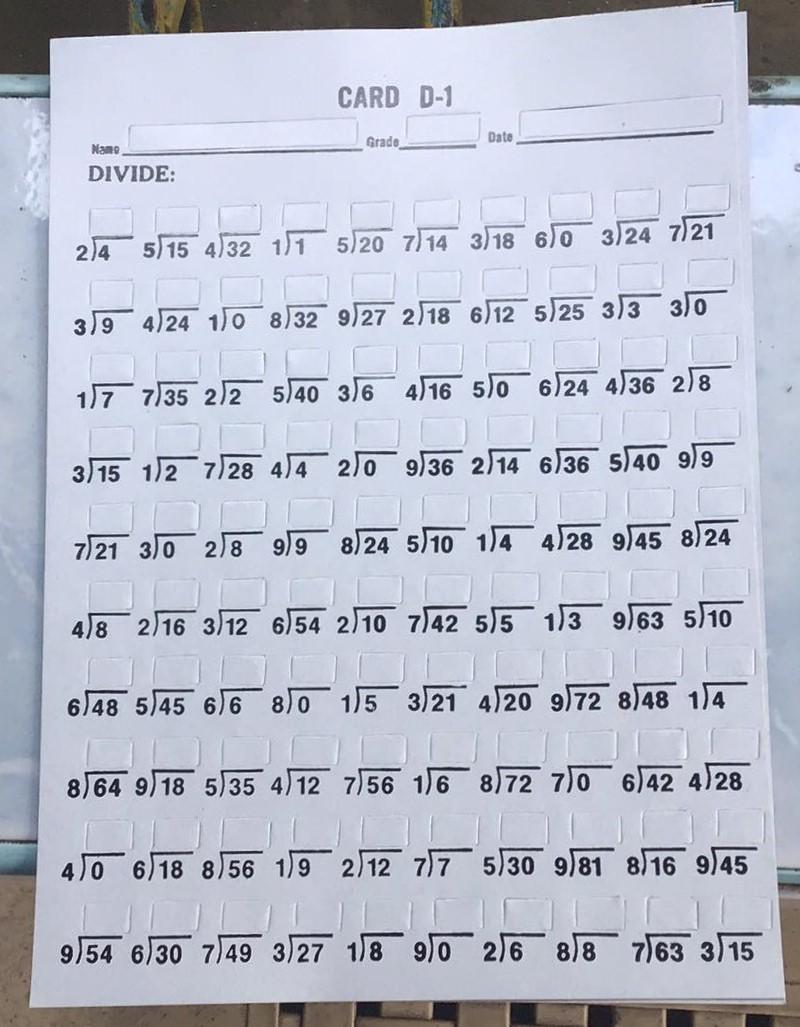 CARD D-1
Name Grade Date
DIVIDE:
2)4 5)15 4)32 1)1 5)20 7)14 3)18 6)0 3)24 7)21
3)9 4)24 1)0 8)32 9)27 2)18 6)12 5)25 3)3 3)0
1)7 7)35 2)2 5)40 3)6 4)16 5)0 6)24 4)36 2)8
3)15 1)2 7)28 4)4 2)0 9)36 2)14 6)36 5)40 9)9
7)21 3)0 2)8 9)9 8)24 5)10 1)4 4)28 9)45 8)24
4)8 2)16 3)12 6)54 2)10 7)42 5)5 1)3 9)63 5)10
6)48 5)45 6)6 8)0 1)5 3)21 4)20 9)72 8)48 1)4
8)64 9)18 5)35 4)12 7)56 1)6 8)72 7)0 6)42 4)28
4)0 6)18 8)56 1)9 2)12 7)7 5)30 9)81 8)16 9)45
9)54 6)30 7)49 3)27 1)8 9)0 2)6 8)8 7)63 3)15